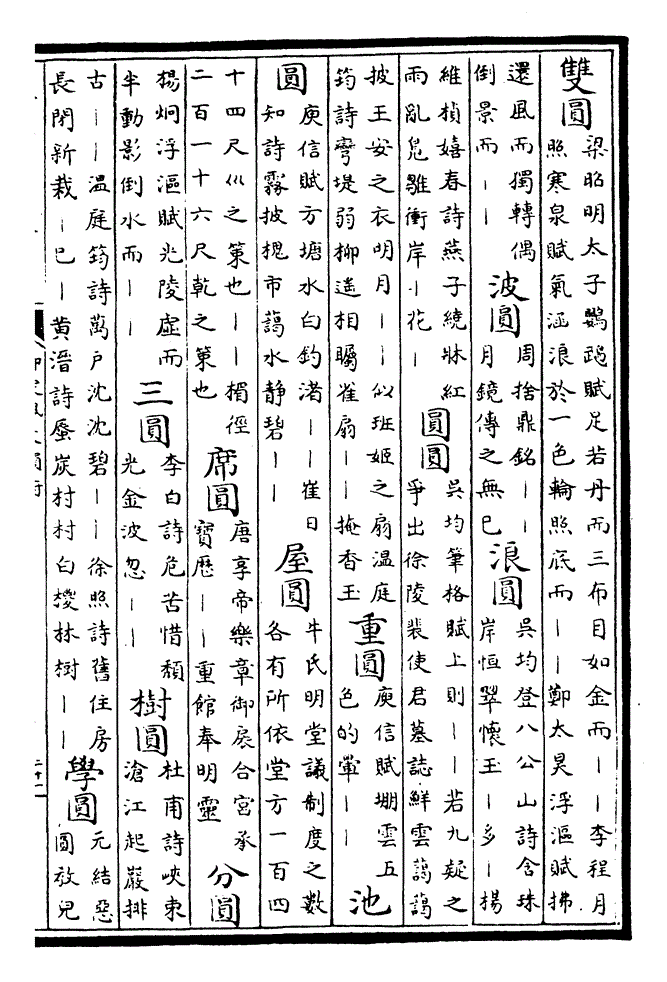 雙圓
梁昭明太子鸚鵡賦足若丹而三布目如金而丨丨李程月
照寒泉賦氣涵浪於一色輪照底而丨丨鄭太昊浮漚賦拂
還風而獨轉偶
倒景而丨丨
波圓
周捨鼎銘丨丨
月鏡傳之無已
浪圓
吳均登八公山詩含珠
岸恒翠懷玉丨多丨楊
維楨嬉春詩燕子繞牀紅
雨亂鳧雛衝岸丨花丨
圓圓
吳均筆格賦上則丨丨若九疑之
爭出徐陵裴使君墓誌鮮雲藹藹
披王安之衣明月丨丨似班姬之扇温庭
筠詩彎堤弱柳遥相矚雀扇丨丨掩香玉
重圓
庾信賦堋雲五
色的暈丨丨
池
圓
庾信賦方塘水白釣渚丨丨崔日
知詩霧披槐市藹水静碧丨丨
屋圓
牛氏明堂議制度之數
各有所依堂方一百四
十四尺巛之策也丨丨楣徑
二百一十六尺乾之策也
席圓
唐享帝樂章御扆合宮承
寶歷丨丨重館奉明靈
分圓
楊炯浮漚賦光陵虚而
半動影倒水而丨丨
三圓
李白詩危苦惜頹
光金波忽丨丨
樹圓
杜甫詩峽束
滄江起巖排
古丨丨温庭筠詩萬戶沈沈碧丨丨徐照詩舊住房
長閉新栽丨已丨黄溍詩蜃炭村村白㯶林樹丨丨
學圓
元結惡
圓放兒